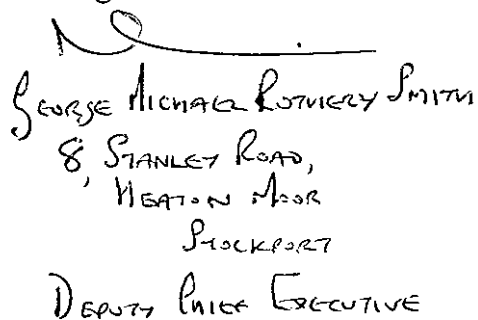 George Michael Rothery Smith
8, Stanley Road,
Heaton Moor
Stockport
Deputy Chief Executive